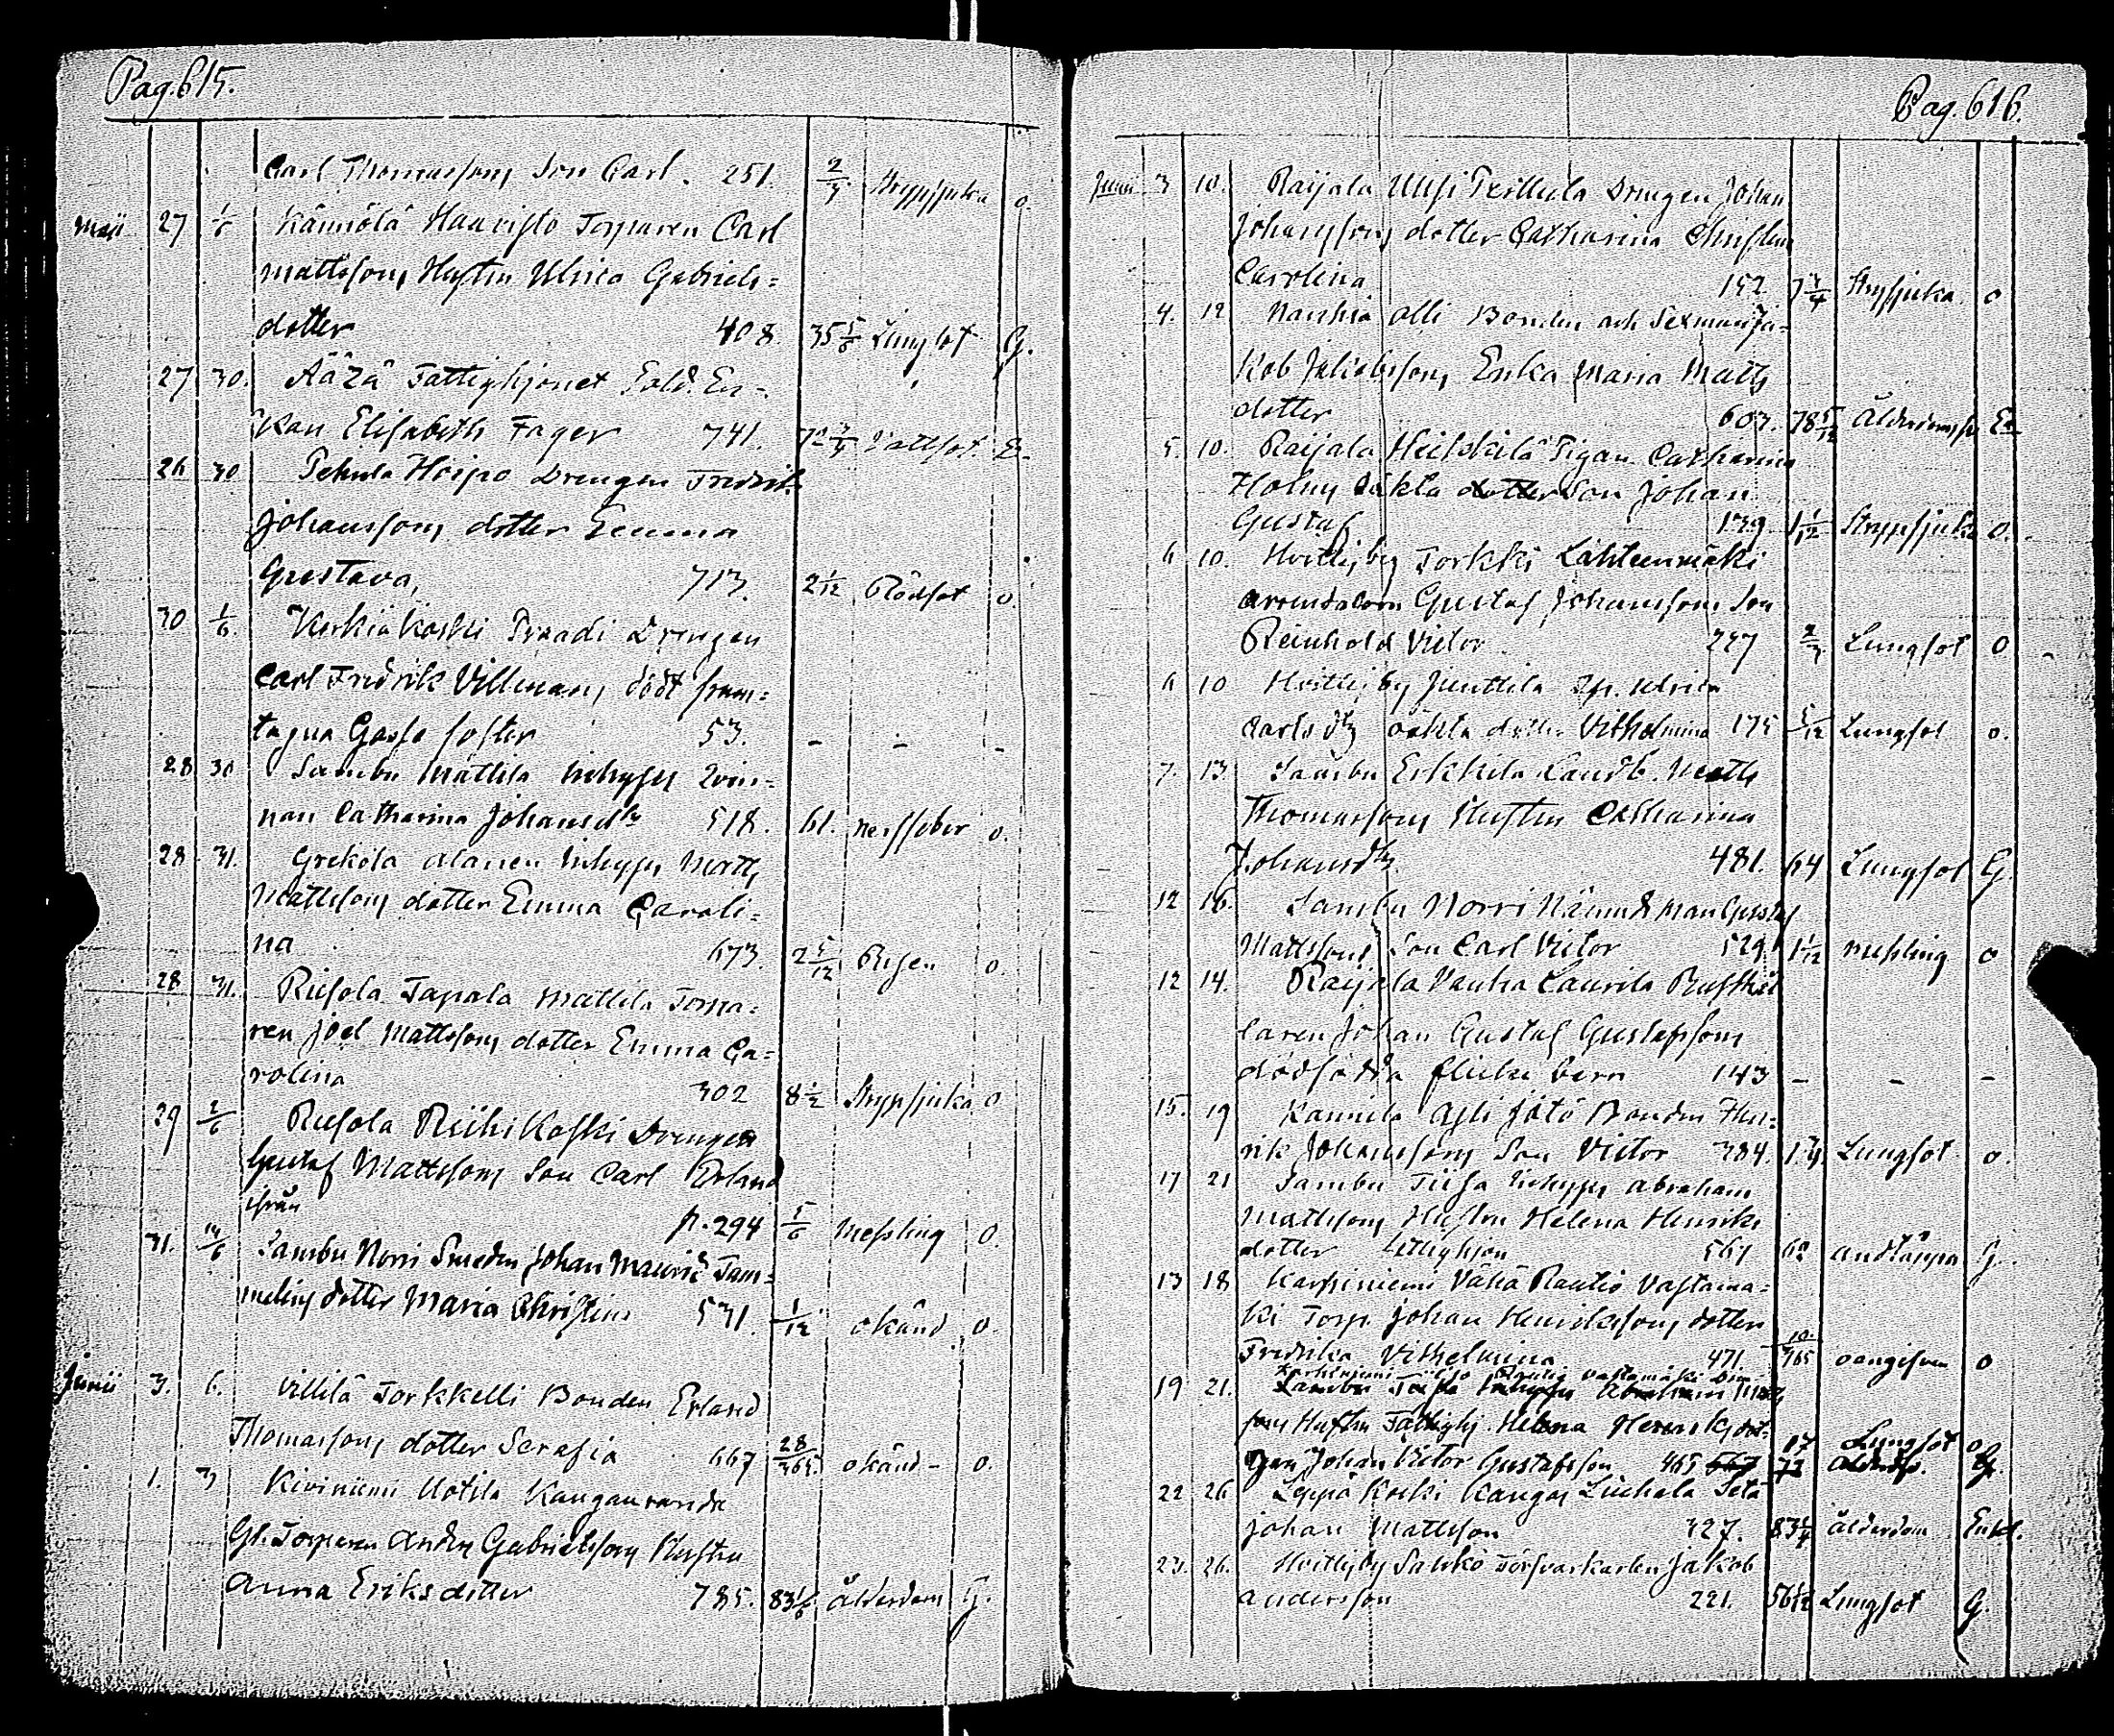 Pag. 615.
Carl Thomassons Son Carl. 251. 2/3 Strypsjuka o.
Maji 27 1/6 Kännölä Haaristo Torparen Carl
Mattssons Hustru Ulrica Gabriels=
dotter 408. 35 5/6 Lungsot G.
27 30. Äärä Fattighjonet Sold. En-
kan Elisabeth Fager 741. Vattsot E.
26 30 Pehula Drengen Fredrik
Johanssons dotter Emma
Gustava, 713. 2 1/12 Rödsot o.
30 1/6 Kerkiäkoski Draadi Drengen
Carl Fredrik Villmans, dödt fram=
tagna Gosse foster 53. - - -
28 30 Sambu Mattila Inhyses Qvin=
nan Catharina Johansdtr 518. 61. nerffeber o.
28 31. Grekola Alanen Inhyses Matts
Mattssons dotter Emma Caroli=
na 673. 2 5/12 Risen o.
28 31. Riesola Tapala Mattila Torpa=
ren Joel Mattssons dotter Emma Ca=
rolina 302 8 1/2 Strypsjuka o
29 2/6 Riesola Riihikoski Drengen
Gustaf Mattssons Son Carl Erland
ifrån p. 294 5/6 Messling o.
31. 14/6 Sambu Norri Smeden Johan Mauriz Tam=
melins dotter Maria Christina 531. 1/12 okänd o.
Junii 3. 6. Villilä Torkkelli Bonden Erland
Thomassons dotter Serafia 667 28/365 okänd - o.
1. 3 Kiviniemi Uotila Kanganranda
Gl. Torparen Anders Gabrielssons Hustru
Anna Eriksdotter 785. 83 1/6 ålderdom G.
Pag. 616.
Junii 3 10. Raijala Ulfsi Drengen Johan
Johanssons dotter Catharina Christina
Carolina 152 Strypsjuka o
4. 12 Nauhia Olli Bonden och Sexman Ja=
kob Jakobssons Enka Maria Matts
dotter 603. 78 5/12 Ålderdoms E
5. 10. Raijala Heikkilä Pigan Catharina
Holms oäkta dotter Son Johan
Gustaf 139 1 1/12 Strypsjuka o.
6 10. Hvittisby Torkki Lähteenmäki
Arrendatorn Gustaf Johanssons Son
Reinhold Victor 227 2/3 Lungsot o
6 10 Hvittisby Junttila Ulrica
Carlsdtrs oäkta dotter Vilhelmina 175 5/12 Lungsot o.
7. 13 Sambu Erkkila Landb. Matts
Thomassons Hustru Catharina
Johansdtr. 481. 64 Lungsot G.
12 16. Sambu Norri Nämndeman Gustaf
Mattssons Son Carl Victor 529 1 1/12 messling o
12 14. Raijala Vanha Laurila Rusthål
laren Johan Gustaf Gustafssons
dödfödda flicke barn 143 - - -
15. 19 Kannila Jötö Bonden Hen=
rik Johanssons Son Victor 384. Lungsot o.
17 21 Sambu Tiisa Inhyses Abraham
Mattssons Hustru Helena Henriks
dotter fattighjon 567 62 andtäppa G.
13 18 Karhiniemi Vähä Rautio Vastamä=
ki Torp. Johan Henrikssons dotter
Fredrika Vilhelmina 471. 10/365 oangifven o
Karhiniemi Rautio Vastamäki
19 21. Sambu Tiisa Inhyses Abraham Matts
sons Hustru Fattighj. Helena Henriksdot-
Johan Victor Gustafsson 465 567 17 72 Lungsot o G.
22 26 Leppäkoski Kangas Liuhala
Johan Mattsson 327. 83 1/4 ålderdom Enkl.
23. 26. Hvittisby Sarko Försvarskarlen Jakob
Andersson 221. 56 Lungsot G